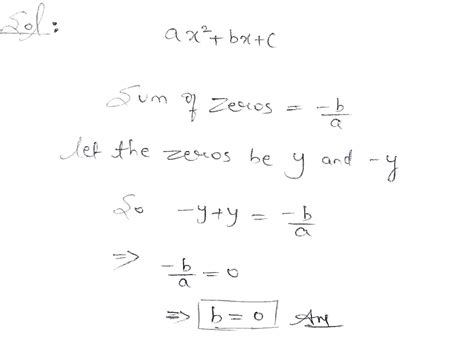 Sol:
ax² + bx + c
Sum of zeros = -b/a
let the zeros be y and -y
So -y + y = -b/a
⇒ -b/a = 0
⇒ b = 0 Ans